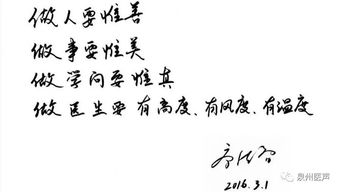 做人要惟善
做事要惟美
做学问要惟真
做医生要有高度、有风度、有温度
2016.3.1
泉州医声